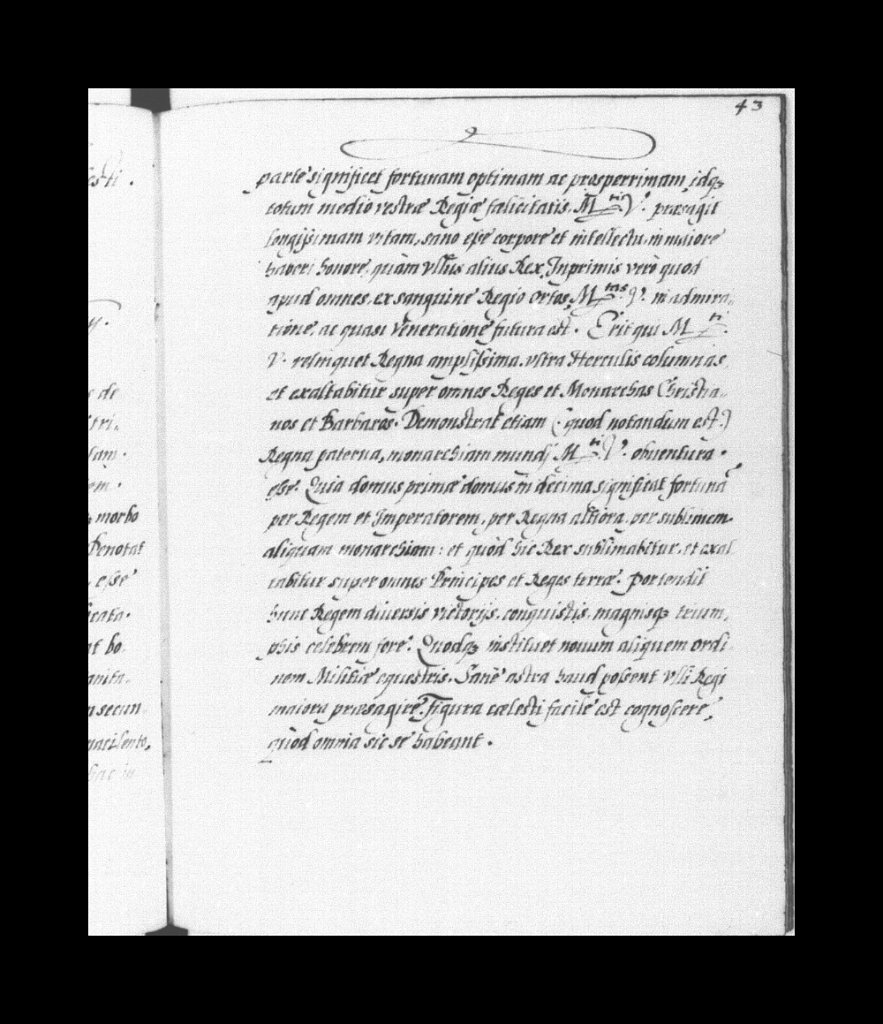 43
parte significet fortunam optimam ac prosperrimam, idq;
totum medio vestræ Regiæ fælicitatis, M.ti V.e præsagit
longissimam vitam, sano esse corpore et intellectu, in maiore
haberi honore, quàm vllus alius Rex, Inprimis verò quod
apud omnes, ex sanguine Regio ortos, M.tas V. in admira-
tione, ac quasi veneratione futura est. Erit qui M.ti
V. relinquet Regna amplissima, vltra Herculis columnas,
et exaltabitur super omnes Reges et Monarchas Christia-
nos et Barbaros. Demonstrat etiam (quod notandum est)
Regna paterna, monarchiam mundi M.ti V.e obuentura.
esse. Quia domus primæ domus in decima significat fortunā
per Regem et Imperatorem, per Regna altiora, per sublimem
aliquam monarchiam: et quòd hic Rex sublimabitur, et exal
tabitur super omnes Principes et Reges terræ. Portendit
hunc Regem diuersis victorijs, conquistis, magnisq; trium-
phis celebrem fore. Quodq; instituet nouum aliquem ordi
nem Militiæ equestris. Sanè astra haud possent vlli Regi
maiora præsagire. Figura cælesti facile est cognoscere,
quòd omnia sic se habeant.
de
tri-
morbo
Denotat
esse
bo-
secun